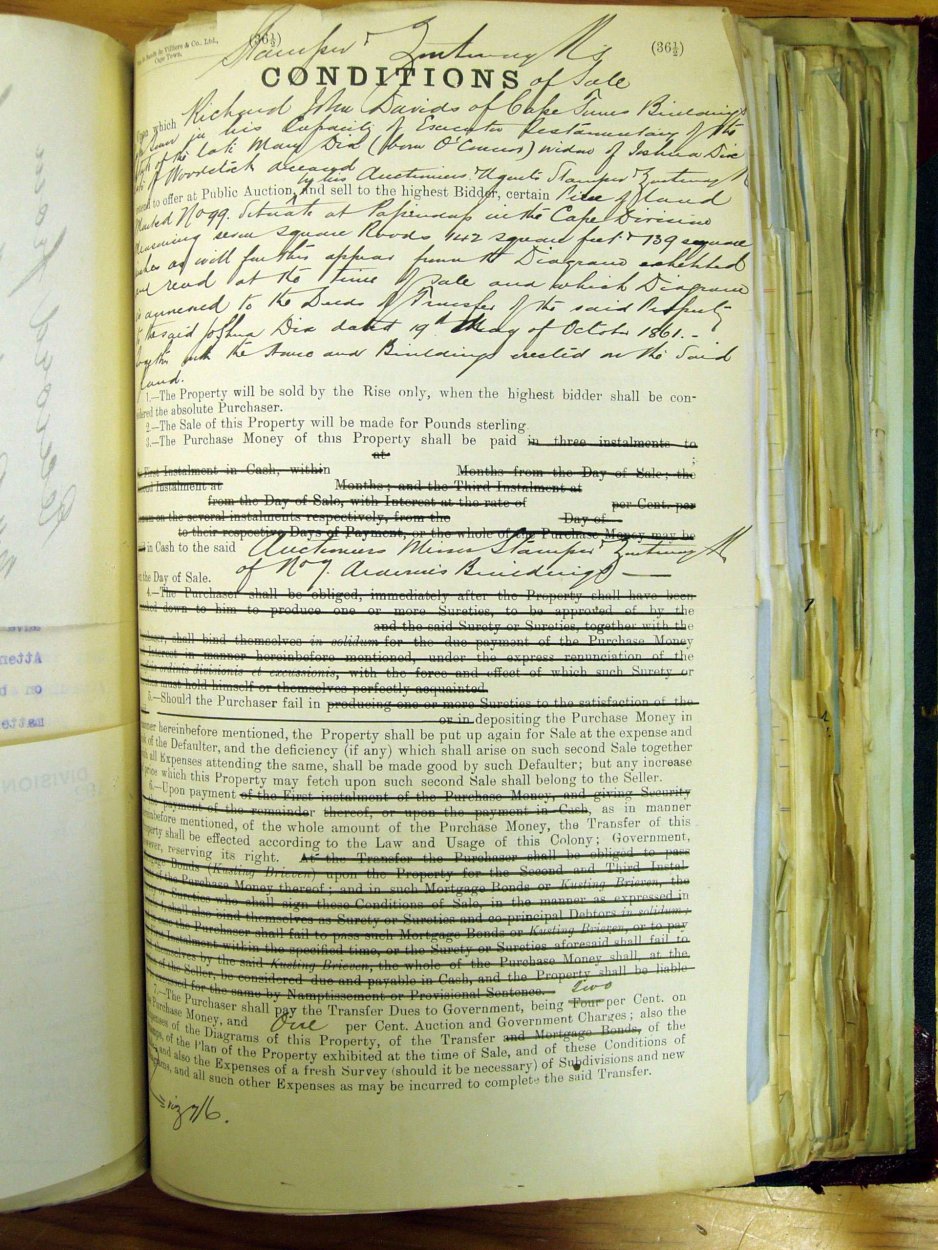 de Villiers & Co., Ltd.,
Cape Town.
(36½) (36½)
Stamper & Zoutendyk
CONDITIONS of Sale
which Richard John Davids of Cape Times Buildings
in his Capacity of Executor Testamentary of the
of the late Mary Dix (born O'Connor) widow of Joshua Dix
of Woodstock deceased
by his Auctioneers & Agents Stamper &
to offer at Public Auction, and sell to the highest Bidder, certain Piece of land
Marked No 99. Situate at Papendorp in the Cape Division
Measuring seven square Roods 142 square feet & 139 square
as will further appear from the Diagram exhibited
read at the time of sale and which Diagram
is annexed to the Deeds of Transfer of the said Property
to the said Joshua Dix dated 19th day of October 1861.-
with the House and Buildings erected on the Said
land.
1.—The Property will be sold by the Rise only, when the highest bidder shall be con-
the absolute Purchaser.
2.—The Sale of this Property will be made for Pounds sterling.
3.—The Purchase Money of this Property shall be paid in three instalments to
at
;
First Instalment in Cash, within Months from the Day of Sale; the
Instalment at Months; and the Third Instalment at
from the Day of Sale, with Interest at the rate of per Cent. per
on the several instalments respectively, from the Day of
to their respective Days of Payment, or the whole of the Purchase Money may be
in Cash to the said Auctioneers Messrs Stamper &
of No 7. Arderne's Buildings —
the Day of Sale.
4.—The Purchaser shall be obliged, immediately after the Property shall have been
down to him to produce one or more Sureties, to be approved of by the
and the said Surety or Sureties, together with the
shall bind themselves in solidum for the due payment of the Purchase Money
Interest in manner hereinbefore mentioned, under the express renunciation of the
ordinis divisionis et excussionis, with the force and effect of which such Surety or
must hold himself or themselves perfectly acquainted.
5.—Should the Purchaser fail in producing one or more Sureties to the satisfaction of the
or in depositing the Purchase Money in
hereinbefore mentioned, the Property shall be put up again for Sale at the expense and
of the Defaulter, and the deficiency (if any) which shall arise on such second Sale together
all Expenses attending the same, shall be made good by such Defaulter; but any increase
price which this Property may fetch upon such second Sale shall belong to the Seller.
6.—Upon payment of the First instalment of the Purchase Money, and giving Security
the payment of the remainder thereof, or upon the payment in Cash, as in manner
mentioned, of the whole amount of the Purchase Money, the Transfer of this
shall be effected according to the Law and Usage of this Colony; Government,
reserving its right. At the Transfer the Purchaser shall be obliged to pass
Bonds (Kusting Brieven) upon the Property for the Second and Third Instal-
of the Purchase Money thereof; and in such Mortgage Bonds or Kusting Brieven, the
or Sureties who shall sign these Conditions of Sale, in the manner as expressed in
shall also bind themselves as Surety or Sureties and co-principal Debtors in solidum;
the Purchaser shall fail to pass such Mortgage Bonds or Kusting Brieven, or to pay
Instalment within the specified time, or the Surety or Sureties aforesaid shall fail to
by the said Kusting Brieven, the whole of the Purchase Money shall, at the
of the Seller, be considered due and payable in Cash, and the Property shall be liable
for the same by Namptissement or Provisional Sentence.
two
7.—The Purchaser shall pay the Transfer Dues to Government, being Four per Cent. on
Purchase Money, and One per Cent. Auction and Government Charges; also the
of the Diagrams of this Property, of the Transfer and Mortgage Bonds, of the
of the Plan of the Property exhibited at the time of Sale, and of these Conditions of
and also the Expenses of a fresh Survey (should it be necessary) of Subdivisions and new
and all such other Expenses as may be incurred to complete the said Transfer.